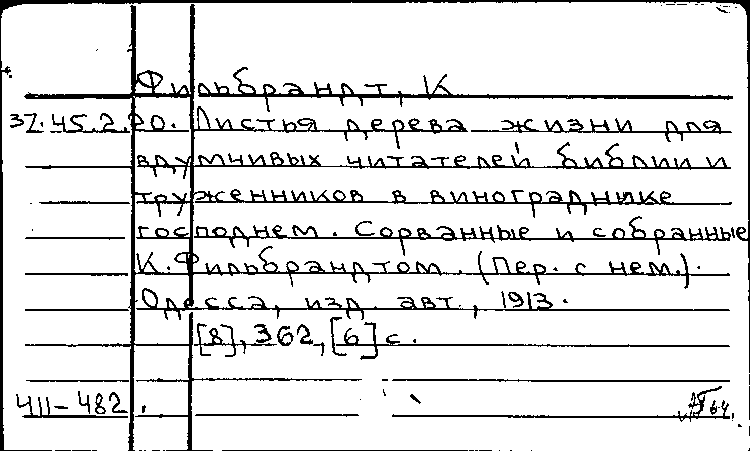 Фильбрандт, К
37.45.2.20. Листья дерева жизни для
вдумчивых читателей библии и
труженников в винограднике
господнем. Сорванные и собранные
К. Фильбрандтом. (Пер. с нем.).
Одесса, изд. авт., 1913.
[8], 362, [6] с.
Ч11-482.